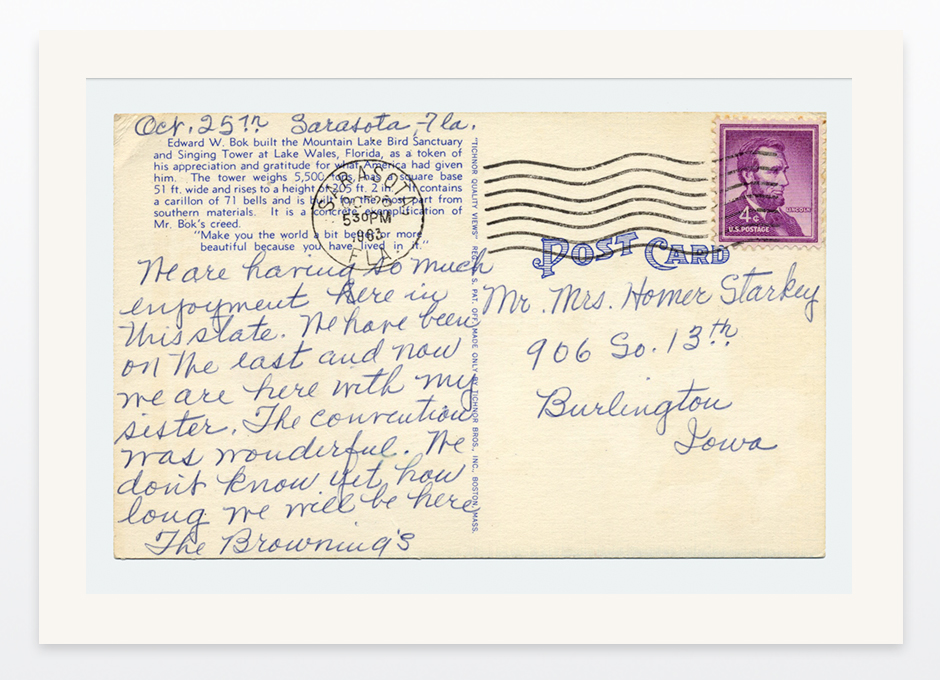 Oct. 25th Sarasota, Fla.
Edward W. Bok built the Mountain Lake Bird Sanctuary
and Singing Tower at Lake Wales, Florida, as a token of
his appreciation and gratitude for what America had given
him. The tower weighs 5,500 tons, has a square base
51 ft. wide and rises to a height of 205 ft. 2 in. It contains
a carillon of 71 bells and is built for the most part from
southern materials. It is a concrete exemplification of
Mr. Bok's creed.
"Make you the world a bit better or more
beautiful because you have lived in it."
SARASOTA
OCT 25
530PM
1963
FLA.
We are having so much
enjoyment here in
this state. We have been
on the east and now
we are here with my
sister. The convention
was wonderful. We
don't know yet how
long we will be here
The Browning's
"TICHNOR QUALITY VIEWS" REG. U. S. PAT. OFF. MADE ONLY BY TICHNOR BROS., INC., BOSTON, MASS.
4¢
LINCOLN
U.S. POSTAGE
POST CARD
Mr. Mrs. Homer Starkey
906 So. 13th
Burlington
Iowa